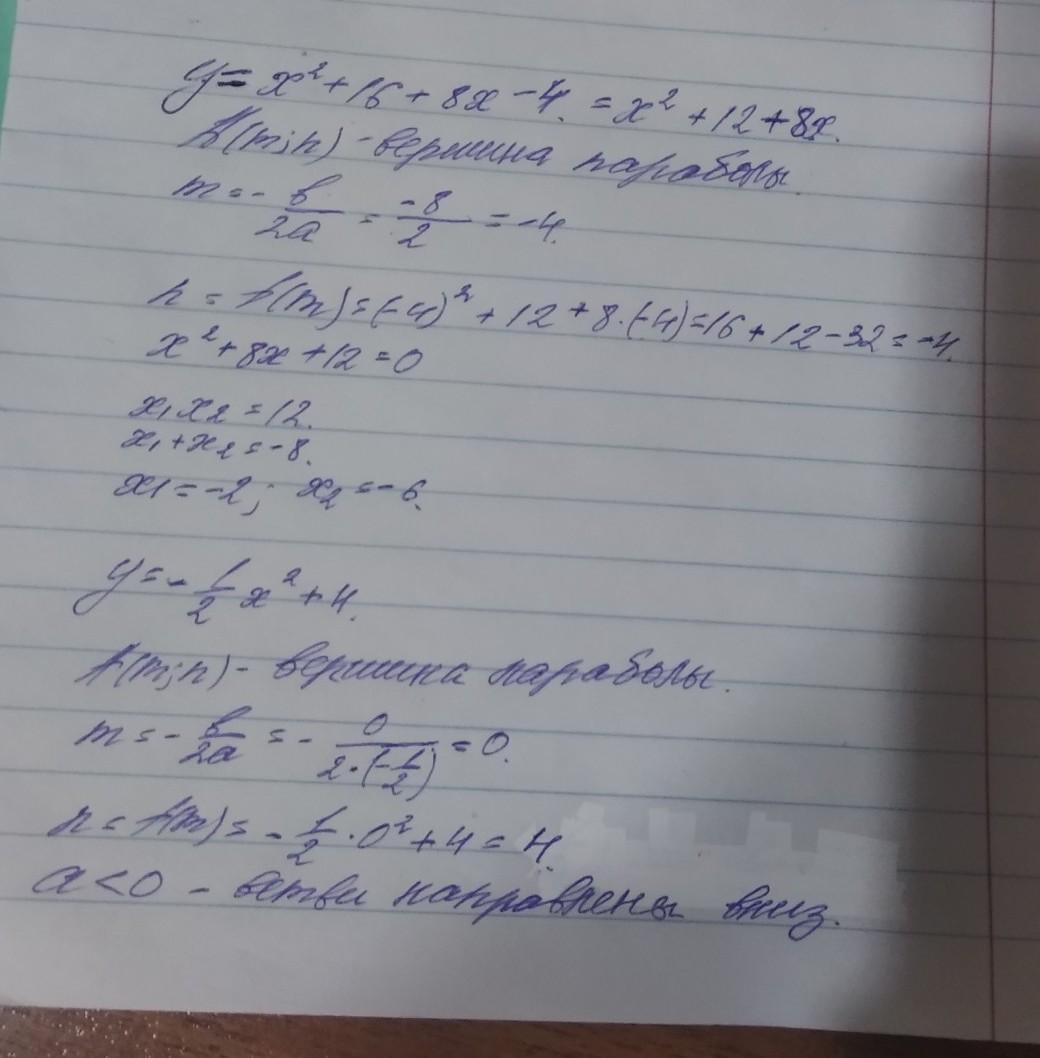 y = x² + 16 + 8x - 4. = x² + 12 + 8x.
A(m;n) - вершина параболы.
m = - в/2a = -8/2 = -4.
n = f(m) = (-4)² + 12 + 8·(-4) = 16 + 12 - 32 = -4.
x² + 8x + 12 = 0
x₁x₂ = 12.
x₁ + x₂ = -8.
x₁ = -2; x₂ = -6.
y = - 1/2 x² + 4.
A(m;n) - вершина параболы.
m = - в/2a = - 0/2·(-1/2) = 0.
n = f(m) = - 1/2 · 0² + 4 = 4.
a < 0 - ветви направлены вниз.